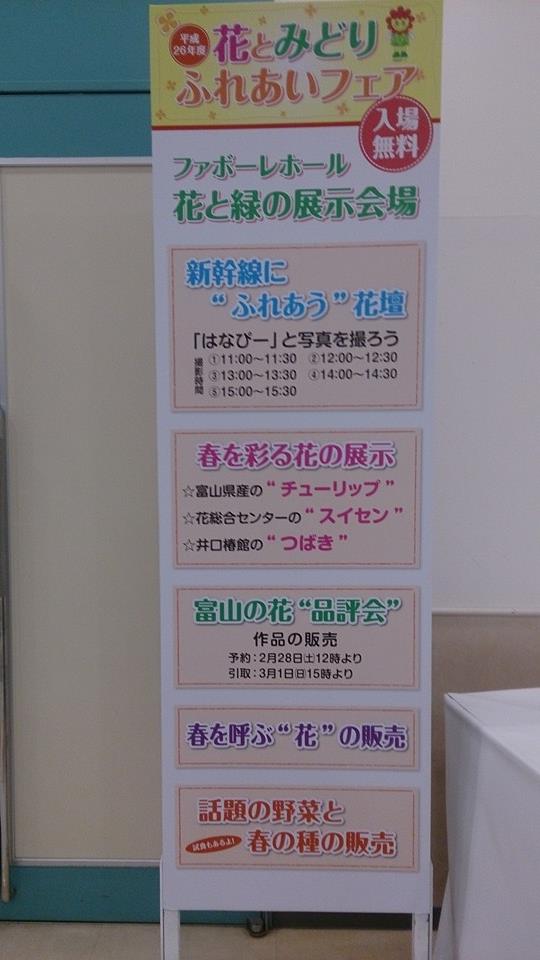 平成
26年度
花とみどり
ふれあいフェア
入場
無料
ファボーレホール
花と緑の展示会場
新幹線に
“ふれあう”花壇
「はなぴー」と写真を撮ろう
撮影時間
①11:00～11:30 ②12:00～12:30
③13:00～13:30 ④14:00～14:30
⑤15:00～15:30
春を彩る花の展示
☆富山県産の“チューリップ”
☆花総合センターの“スイセン”
☆井口椿館の“つばき”
富山の花“品評会”
作品の販売
予約：2月28日㊏12時より
引取：3月1日㊐15時より
春を呼ぶ“花”の販売
話題の野菜と
試食もあるよ!
春の種の販売